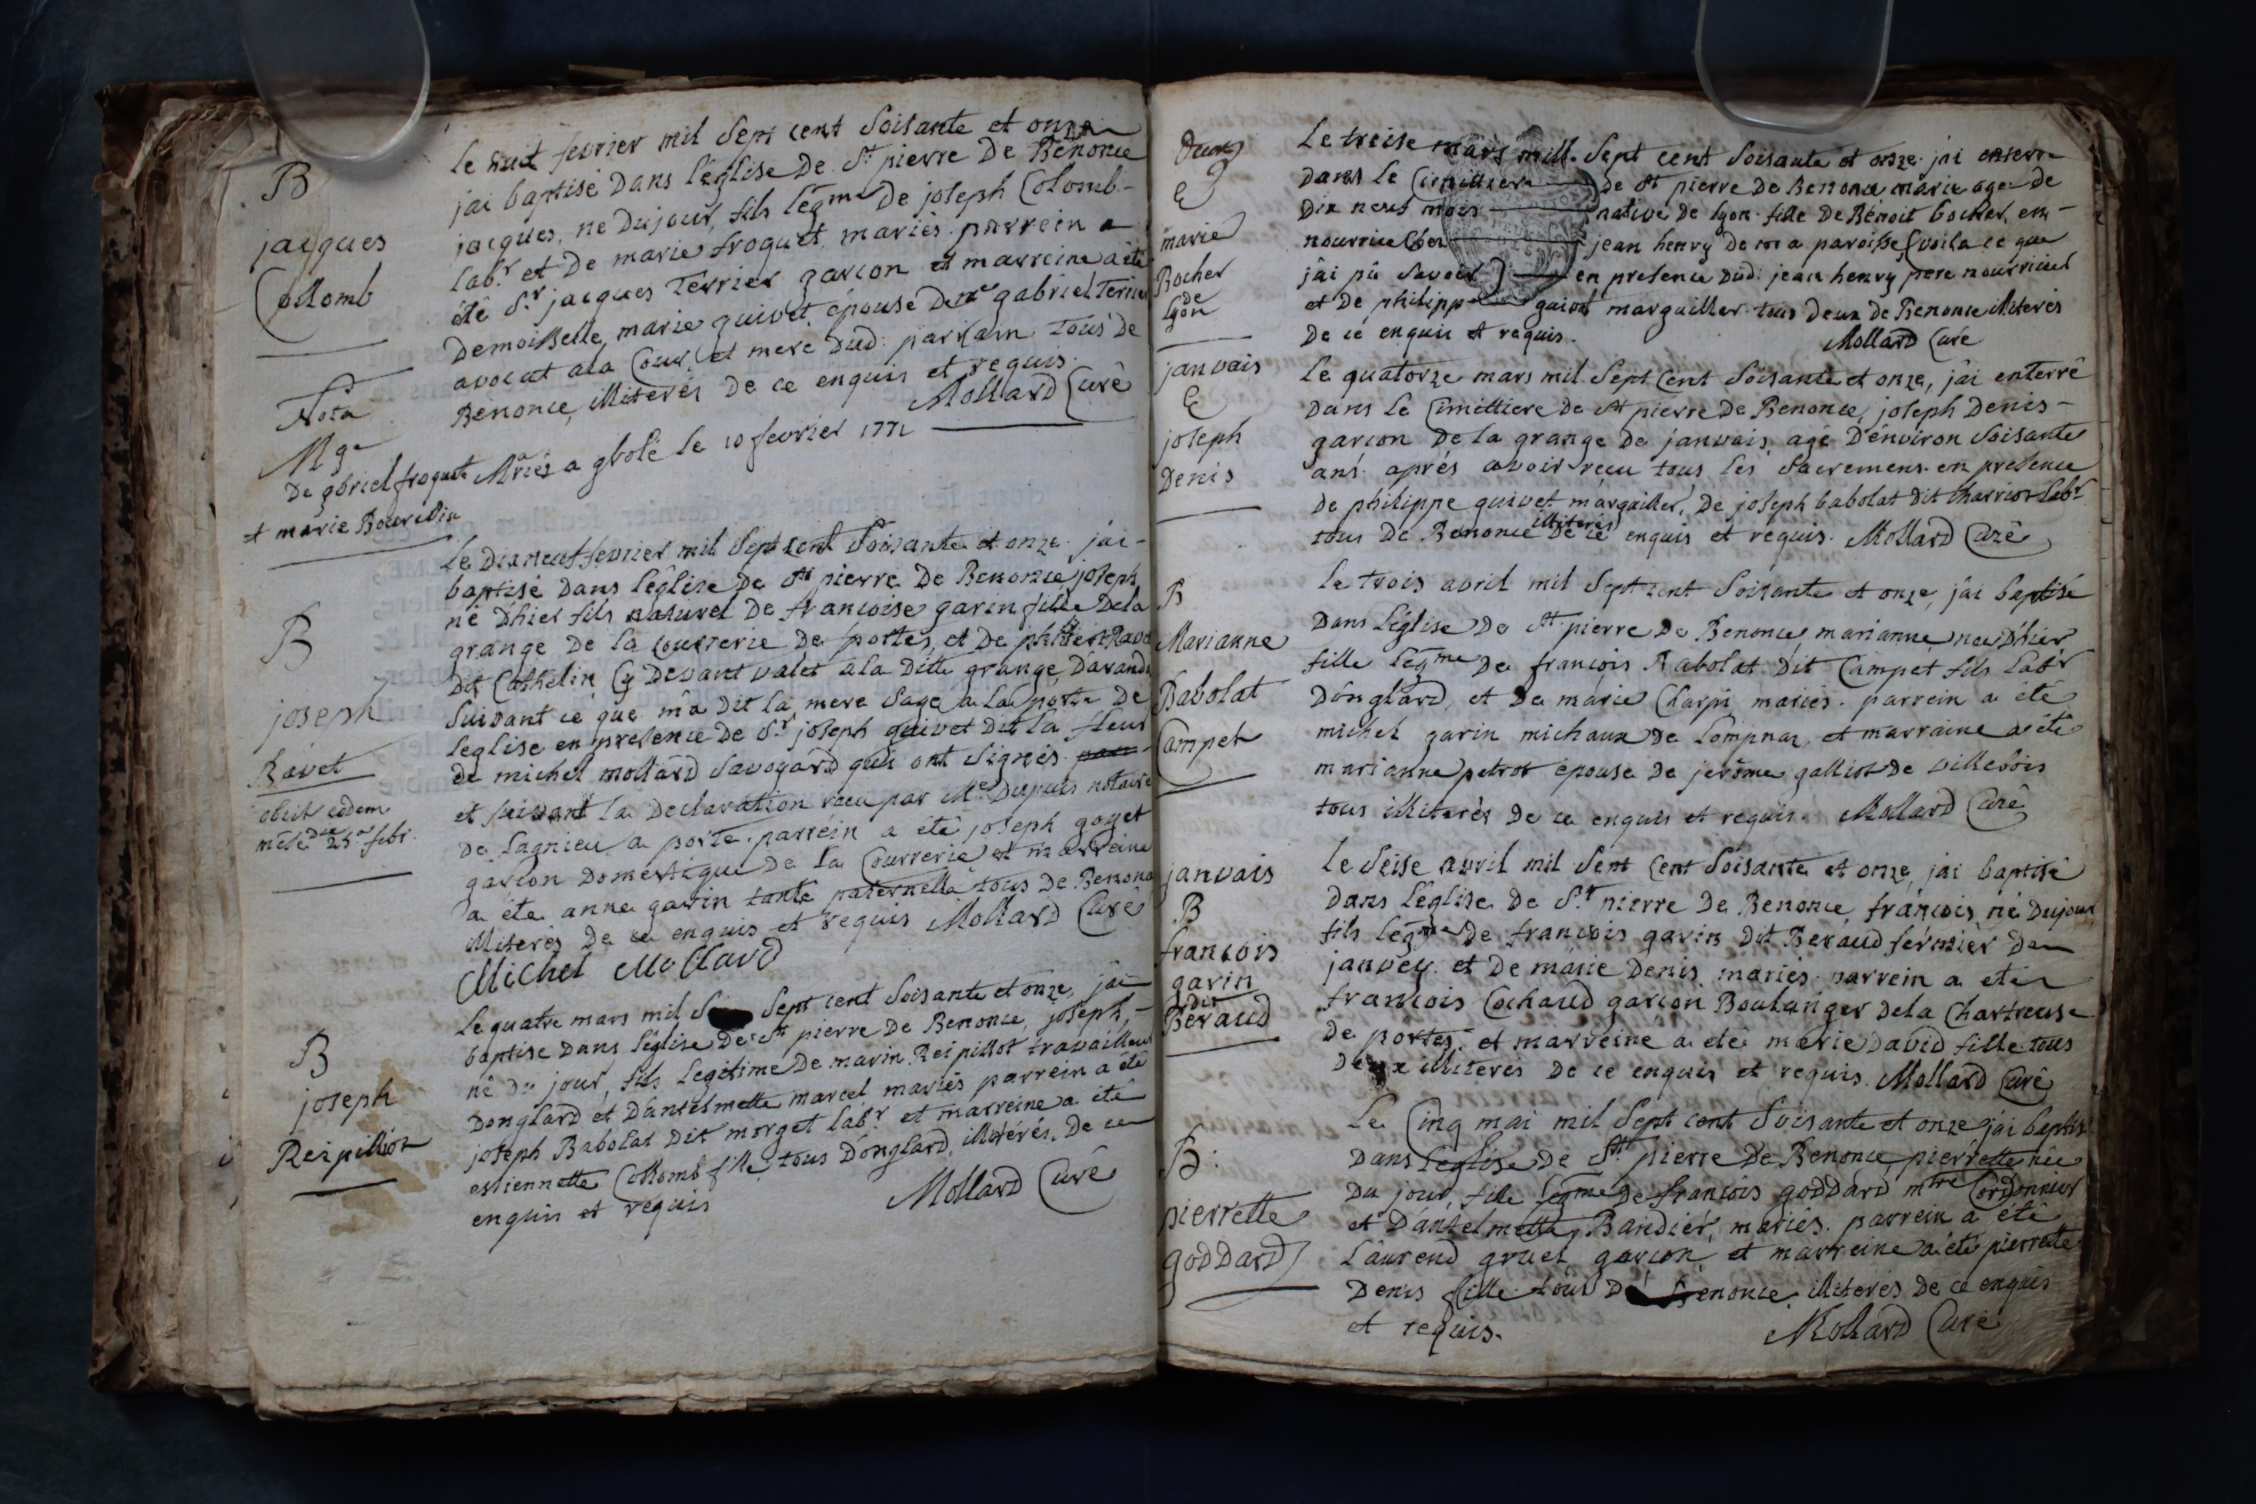 B
jacques
Collomb
le huit fevrier mil sept cent soisante et onze
jai baptisé dans l'église de St pierre de Benonce
jacques, né dujour, fils légme de joseph Colomb-
labr et de marie froquet mariés parrein a
été Sr jacques Terrier garcon et marreine a été
Demoisselle marie guivet épouse de Me gabriel Terrier
avocat ala Cour, et mere dud: parrain tous de
Benonce, illiterés de ce enquis et requis.
Mollard Curé
Nota
Mge
De gbriel froquet Mariés a gbolé le 10 fevrier 1771
et marie Bourdin
B
joseph
Ravet
obiit eodem
mense 25a febr.
le dixneuf fevrier mil sept cent soisante et onze. jai-
baptisé dans l'église de St pierre de Benonce joseph
né d'hier fils naturel de francoise garin fille dela
grange de la courrerie de portes, et de Ravet
dit Cathelin Cy devant valet ala ditte grange, d'arandas
suivant ce que m'a dit la mere sage a la porte de
l'eglise en presence de Sr joseph guivet dit la fleur
de michel mollard savoyard qui ont signés
et suivant la declaration recu par Me Dupuis notaire
de Lagnieu a porte. parréin a été joseph goyet
garcon domestique de la Courrerie et marreine
a éte anne garin tante paternella tous de Benonce
illiterés de ce enquis et requis Mollard Curé
Michel Mollard
B
joseph
Reipilliot
le quatre mars mil sept cent soisante et onze, jai
baptise dans l'église de St pierre de Benonce, joseph,-
né du jour, fils legitime de marin Reipillot travailleur
Donglard et D'antelmette marcel mariés parrein a été
joseph Babolat dit morget labr et marreine a été
estiennette Collomb fille, tous D'onglard, illitérés, de ce
enquis et requis
Mollard Curé
Deux
E
marie
Bocher
de
lyon
Le treise mars mill. sept cent soisante et onze. jai enterré
dans le Cimittiere de St pierre de Benonce marie agee de
dix neuf mois native de lyon fille de Bénoit bocher, en-
nourrice Chez jean henry de ma paroisse, (voila ce que
j'ai pû savoir) en presence dud: jean henry pere nourricier
et de philippe guivet marguillier. tous deux de Benonce illiterés
de ce enquis et requis.
Mollard Curé
janvais
E
joseph
Denis
Le quatorze mars mil sept Cent soisante et onze, j'ai enterré
dans le Cimittiere de St pierre de Benonce, joseph Denis-
garcon de la grange de janvais, agé d'énviron soisante
ans. aprés avoir recu tous les sacremens. en presence
de philippe guivet marguiller, de joseph babolat dit charrion labr
tous de Benonce illiterés de ce enquis et requis. Mollard Curé
B
Marianne
Babolat
Campet
le trois avril mil sept cent soisante et onze, j'ai baptisé
dans l'église de St pierre de Benonce marianne nee d'hier
fille legme de francois Babolat dit Campet fils labr
D'onglard, et de marie Charpi mariés. parrein a été
michel garin michaux de Lompnaz, et marraine a été
marianne petrot épouse de jerôme galliot de villebois
tous illiterés de ce enquis et requis. Mollard Curé
janvais
B
francois
garin
dit
Beraud
le seise avril mil sept cent soisante et onze, jai baptisé
dans l'église de St pierre de Benonce, francois né dujour
fils legme de francois garin dit Beraud férmier de
janvey. et de marie Denis mariés. parrein a été
francois Cochaud garcon Boulanger dela Chartreuse
de portes, et marreine a été marie David fille tous
deux illiterés de ce enquis et requis. Mollard Curé
B.
pierrette
goddard
Le Cinq mai mil sept cent soisante et onze jai baptisé
dans l'eglise de St pierre de Benonce pierrette née
du jour, fille legme de francois goddard mtre Cordonnier
et D'antelmette Bandier, mariés. parrein a été
Laurend gruel garcon, et marreine a été pierrette
Denis fille tous de Benonce illiterés de ce enquis
et requis.
Mollard Curé